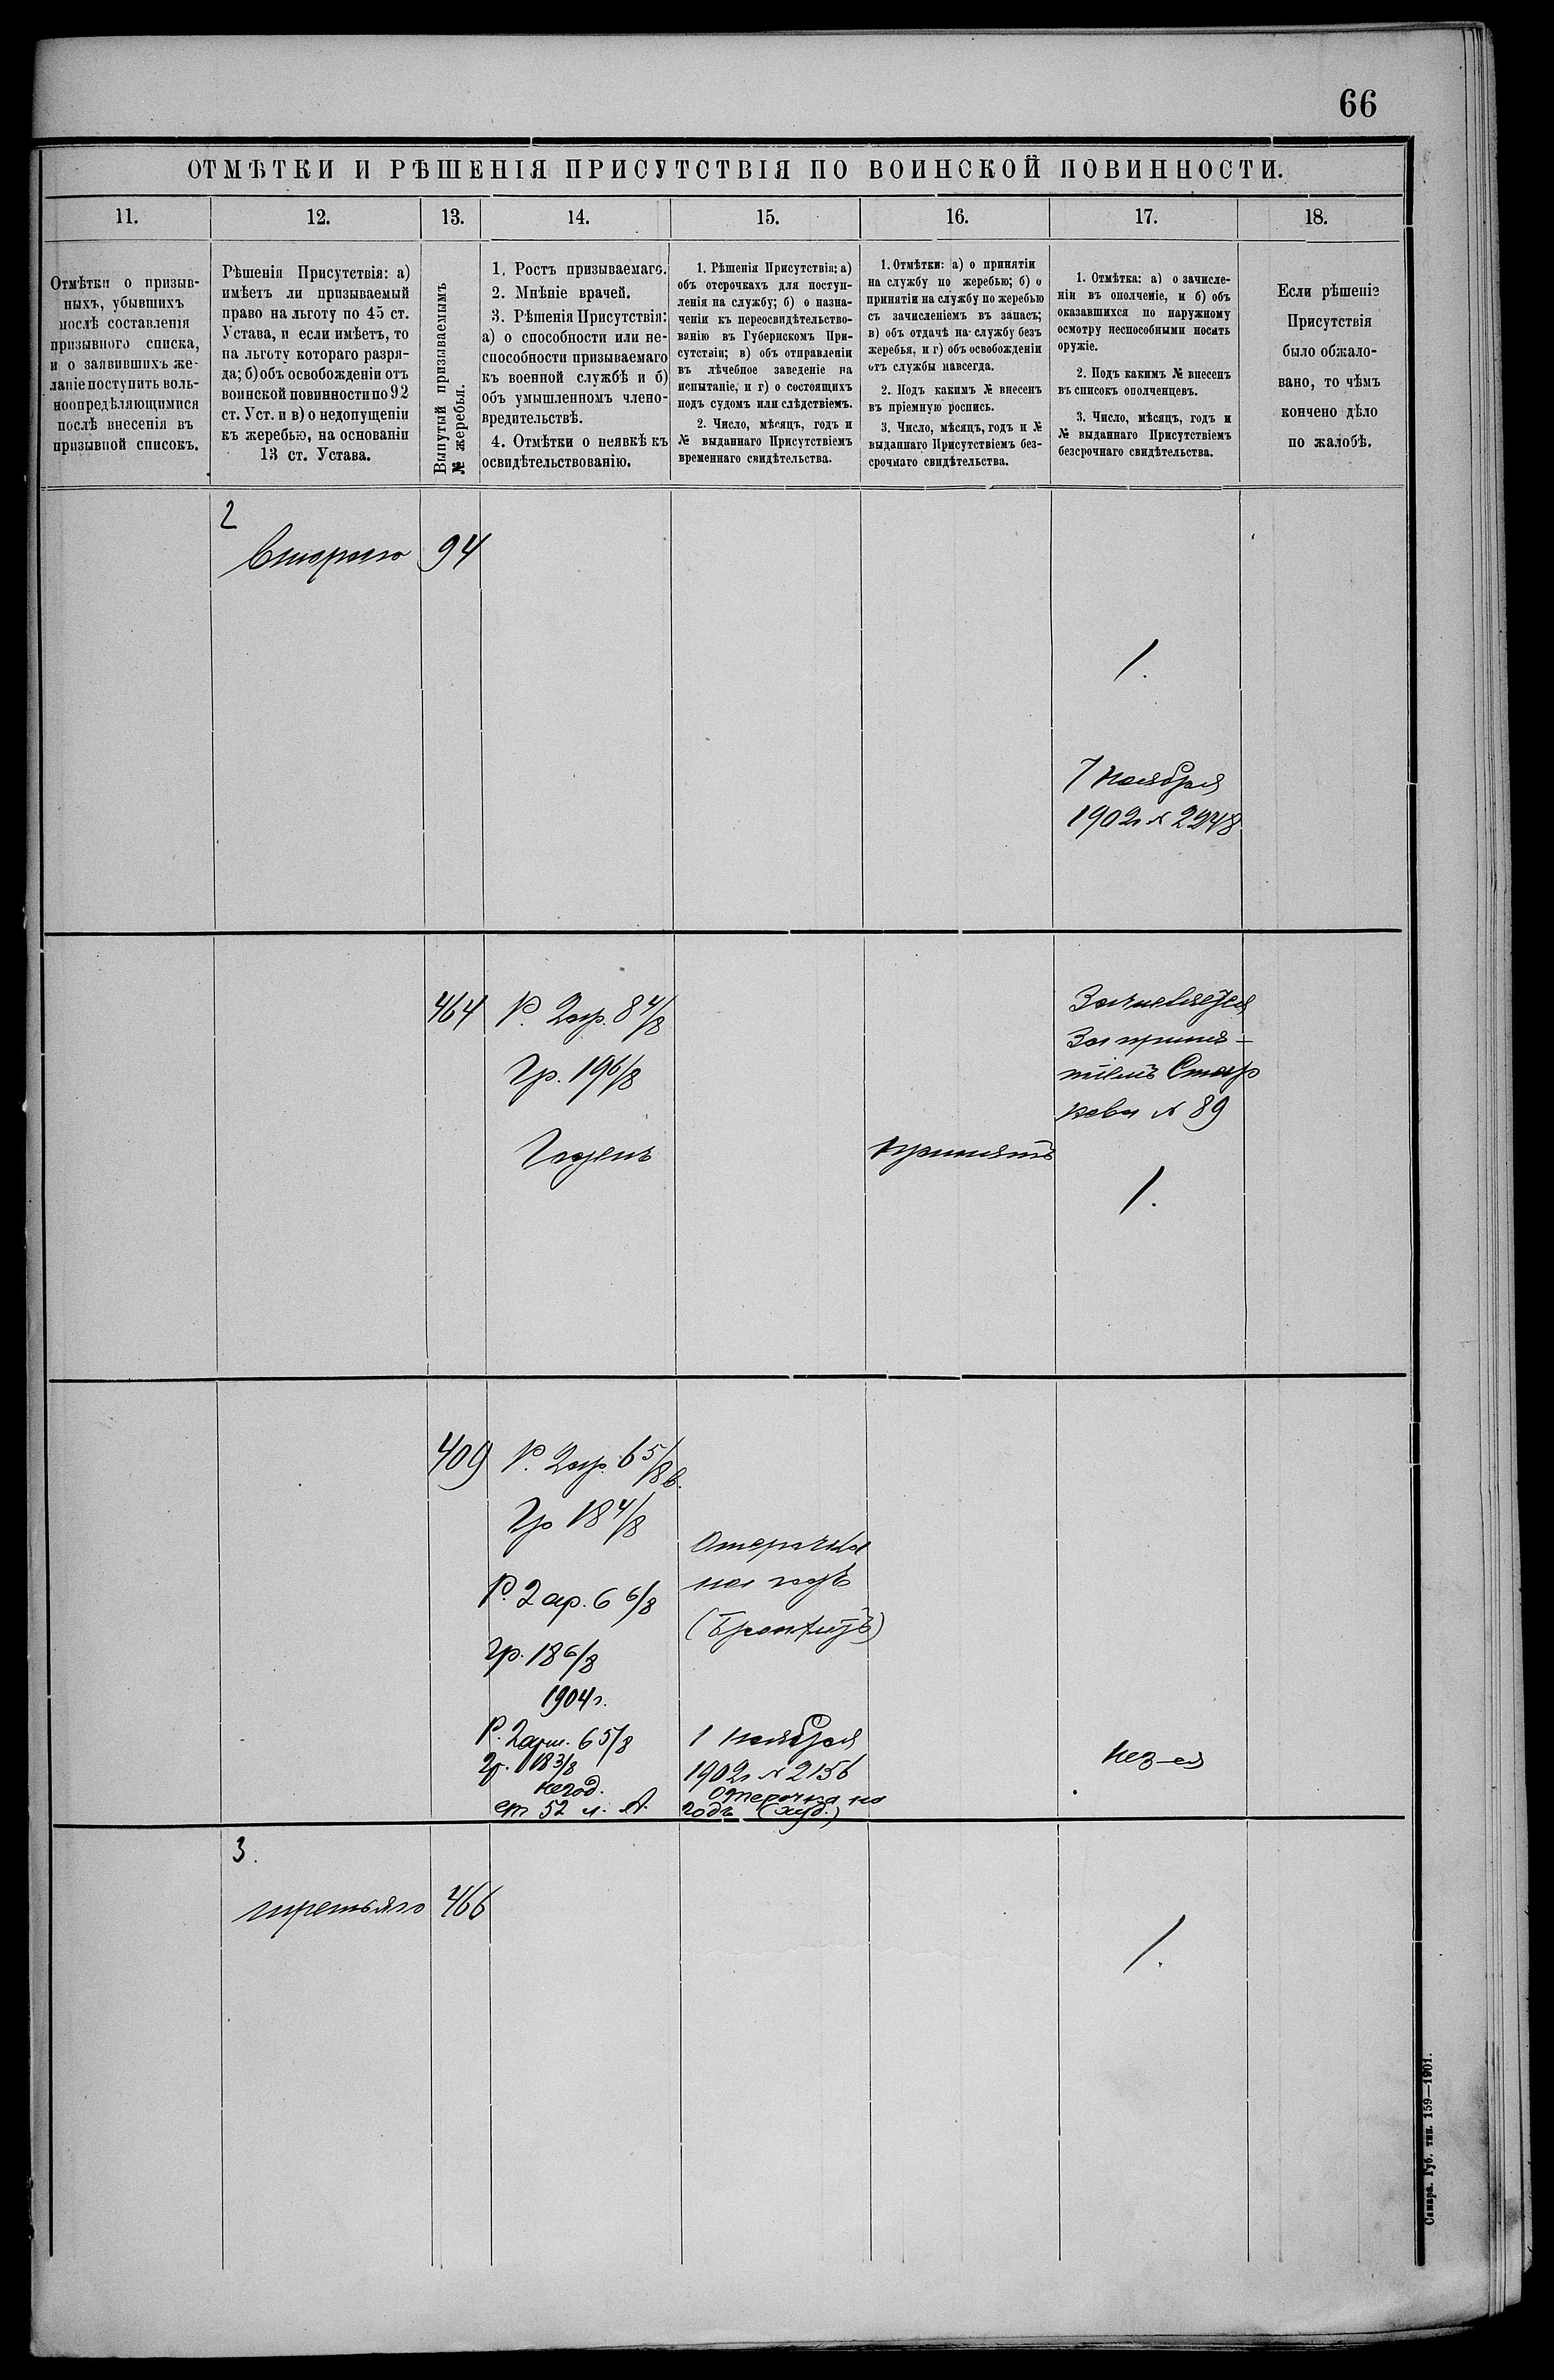 66
ОТМѢТКИ И РѢШЕНІЯ ПРИСУТСТВІЯ ПО ВОИНСКОЙ ПОВИННОСТИ.
11.
12.
13.
14.
15.
16.
17.
18.
Отмѣтки о призыв-
ныхъ, убывшихъ
послѣ составленія
призывного списка,
и о заявившихъ же-
ланіе поступить воль-
ноопредѣляющимися
послѣ внесенія въ
призывной списокъ.
Рѣшенія Присутствія: а)
имѣетъ ли призываемый
право на льготу по 45 ст.
Устава, и если имѣетъ, то
на льготу котораго разря-
да; б) объ освобожденіи отъ
воинской повинности по 92
ст. Уст. и в) о недопущеніи
къ жеребью, на основаніи
13 ст. Устава.
Вынутый призываемымъ
№ жеребья.
1. Ростъ призываемаго.
2. Мнѣніе врачей.
3. Рѣшенія Присутствія:
а) о способности или не-
способности призываемаго
къ военной службѣ и б)
объ умышленномъ члено-
вредительствѣ.
4. Отмѣтки о неявкѣ къ
освидѣтельствованію.
1. Рѣшенія Присутствія: а)
объ отсрочкахъ для поступ-
ленія на службу; б) о назна-
ченіи къ переосвидѣтельство-
ванію въ Губернскомъ При-
сутствіи; в) объ отправленіи
въ лѣчебное заведеніе на
испытаніе, и г) о состоящихъ
подъ судомъ или слѣдствіемъ.
2. Число, мѣсяцъ, годъ и
№ выданнаго Присутствіемъ
временнаго свидѣтельства.
1. Отмѣтки: а) о принятіи
на службу по жеребью; б) о
принятіи на службу по жеребью
съ зачисленіемъ въ запасъ;
в) объ отдачѣ на службу безъ
жеребья, и г) объ освобожденіи
отъ службы навсегда.
2. Подъ какимъ № внесенъ
въ пріемную роспись.
3. Число, мѣсяцъ, годъ и №
выданнаго Присутствіемъ без-
срочнаго свидѣтельства.
1. Отмѣтка: а) о зачисле-
ніи въ ополченіе, и б) объ
оказавшихся по наружному
осмотру неспособными носить
оружіе.
2. Подъ какимъ № внесенъ
въ списокъ ополченцевъ.
3. Число, мѣсяцъ, годъ и
№ выданнаго Присутствіемъ
безсрочнаго свидѣтельства.
Если рѣшеніе
Присутствія
было обжало-
вано, то чѣмъ
кончено дѣло
по жалобѣ.
2
Второго
94
1.
7 Ноября
1902г № 2248
464
Р. 2ар. 8 4/8
Гр. 19 6/8
Годенъ
Принятъ
Зачисляется
За приня-
тіемъ Стар
кова № 89
1.
409
Р. 2ар. 6 5/8 в.
Гр 18 4/8
Р. 2 ар. 6 6/8
Гр. 18 6/8
1904г.
Р. 2арш. 6 5/8
Гр. 18 3/8
негод.
ст 52 л. А.
Отсрочка
на годъ
(Бронхитъ)
1 Ноября
1902г № 2156
Отсрочка на
годъ (худ.)
3.
третьяго
466
1.
Самара. Губ. тип. 159—1901.